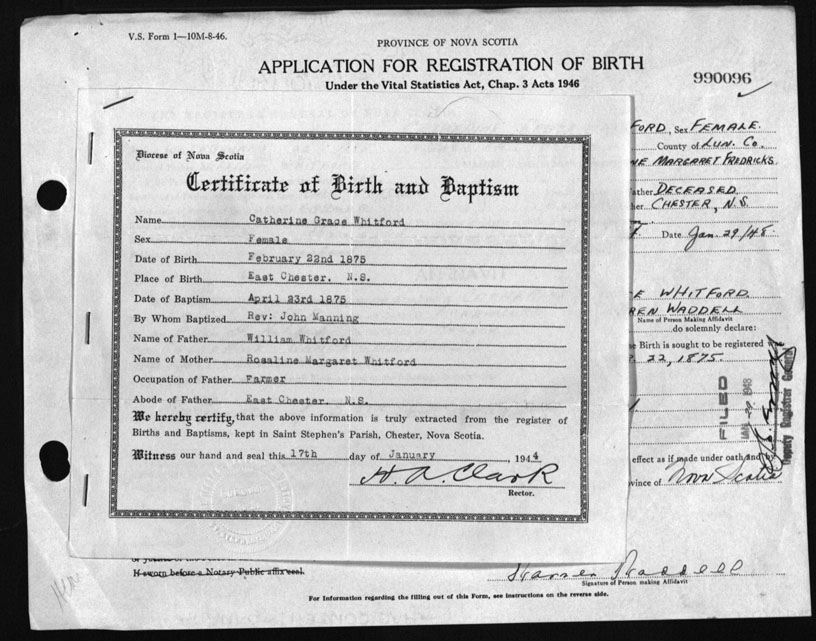 V.S. Form 1—10M-8-46.
PROVINCE OF NOVA SCOTIA
APPLICATION FOR REGISTRATION OF BIRTH
Under the Vital Statistics Act, Chap. 3 Acts 1946
990096
Diocese of Nova Scotia
Certificate of Birth and Baptism
Name Catherine Grace Whitford
Sex Female
Date of Birth February 22nd 1875
Place of Birth East Chester. N.S.
Date of Baptism April 23rd 1875
By Whom Baptized Rev: John Manning
Name of Father William Whitford
Name of Mother Rosaline Margaret Whitford
Occupation of Father Farmer
Abode of Father East Chester. N.S.
We hereby certify, that the above information is truly extracted from the register of
Births and Baptisms, kept in Saint Stephen's Parish, Chester, Nova Scotia.
Witness our hand and seal this 17th day of January, 1944
H. A. Clark
Rector.
FORD, Sex FEMALE.
County of LUN. Co.
NE MARGARET FREDRICKS.
ather DECEASED
her CHESTER, N.S.
Date Jan. 29/48.
E WHITFORD.
REN WADDELL
Name of Person Making Affidavit
do solemnly declare:
e Birth is sought to be registered w
22, 1875.
FILED
JAN 1948
Deputy Registrar General
effect as if made under oath and
vince of Nova Scotia
If sworn before a Notary Public affix seal.
Warren Waddell
Signature of Person making Affidavit
For Information regarding the filling out of this Form, see instructions on the reverse side.